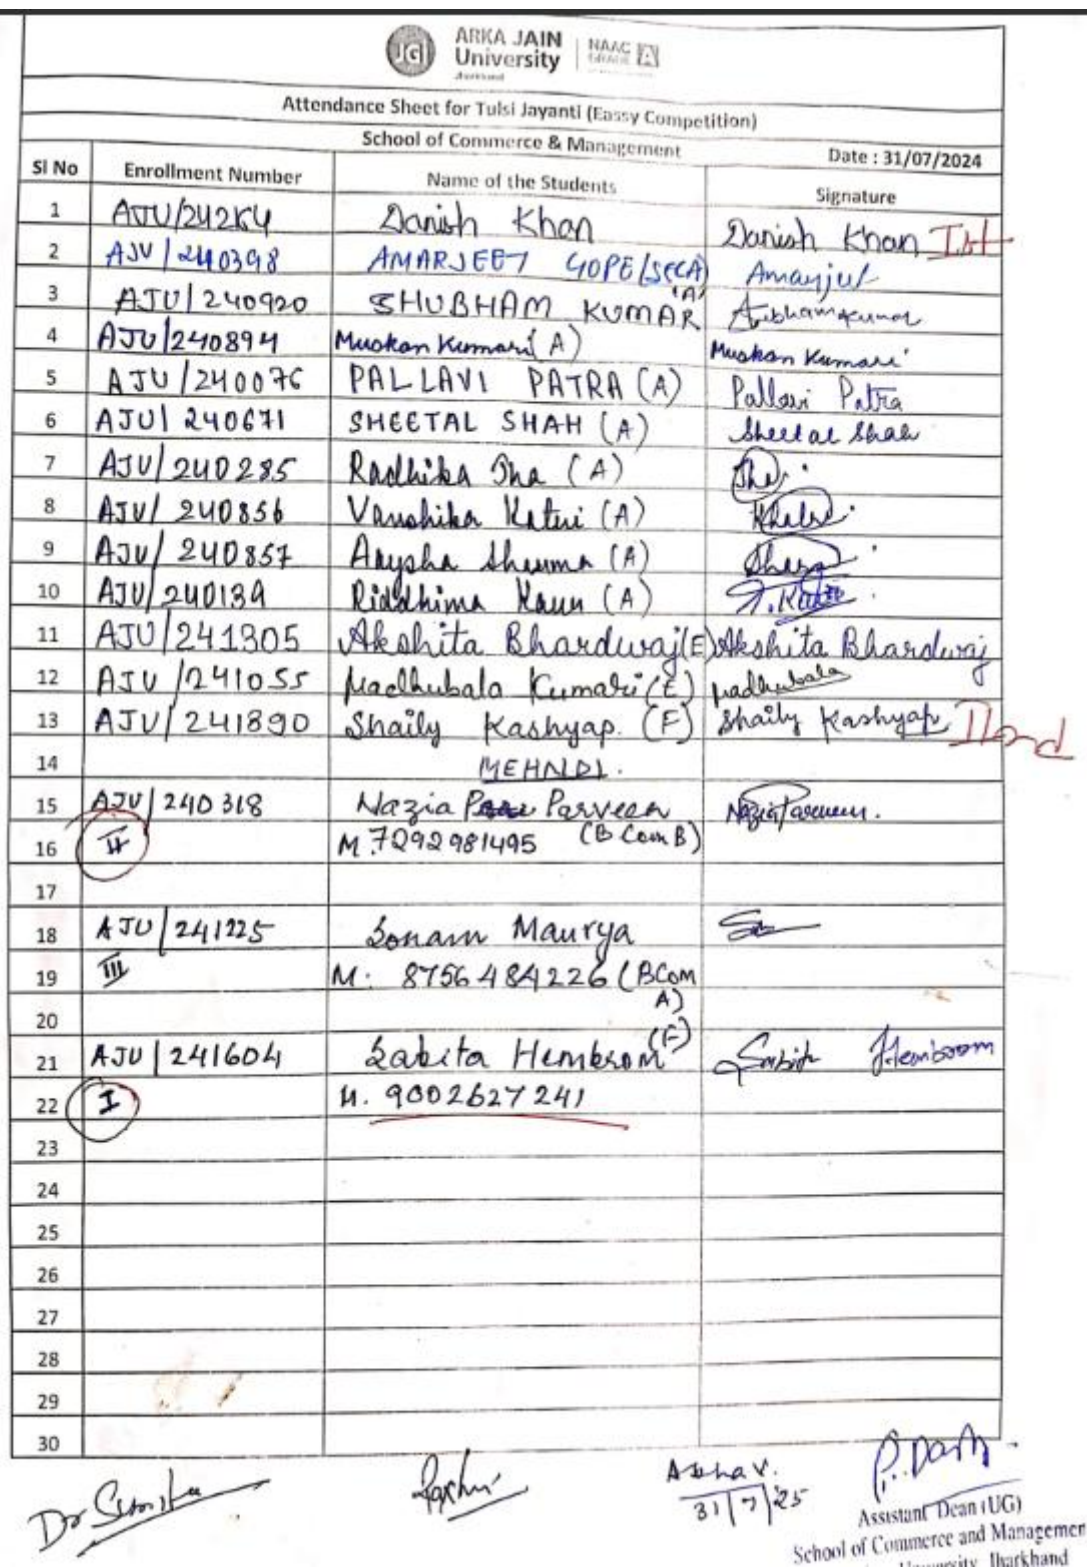 JGI ARKA JAIN University Jharkhand NAAC GRADE A
Attendance Sheet for Tulsi Jayanti (Eassy Competition)
School of Commerce & Management
Date : 31/07/2024
Sl No Enrollment Number Name of the Students Signature
1 Danish Khan Danish Khan Ist
2 AJU/240398 AMARJEET GOPE (SEC A)
3 AJU/240920 SHUBHAM KUMAR (A) Shubham Kumar
4 AJU/240894 Muskan Kumari (A) Muskan Kumari
5 AJU/240076 PALLAVI PATRA (A) Pallavi Patra
6 AJU/240671 SHEETAL SHAH (A) Sheetal Shah
7 AJU/240285 Radhika Jha (A) Jha
8 AJU/240856 Vanshika (A)
9 AJU/240857 Sharma (A)
10 AJU/240139 Riddhima Kaur (A)
11 AJU/241305 Akshita Bhardwaj (E) Akshita Bhardwaj
12 AJU/241055 Madhubala Kumari (E) Madhubala
13 AJU/241890 Shaily Kashyap. (F) Shaily Kashyap IInd
14 MEHNDI.
15 AJU/240318 Nazia Parveen Nazia Parveen.
16 II M. 7292981495 (B Com B)
17
18 AJU/241225 Sonam Maurya
19 III M. 8756484226 (BCom A)
20
21 AJU/241604 Sabita Hembrom (F) Sabita Hembrom
22 I M. 9002627241
23
24
25
26
27
28
29
30
Dr Sunita
31/7/25
P. Dash
Assistant Dean (UG)
School of Commerce and Managemen
University, Jharkhand